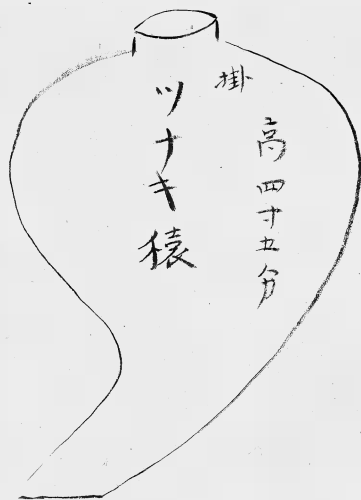 高四寸五分
掛
ツナキ猿